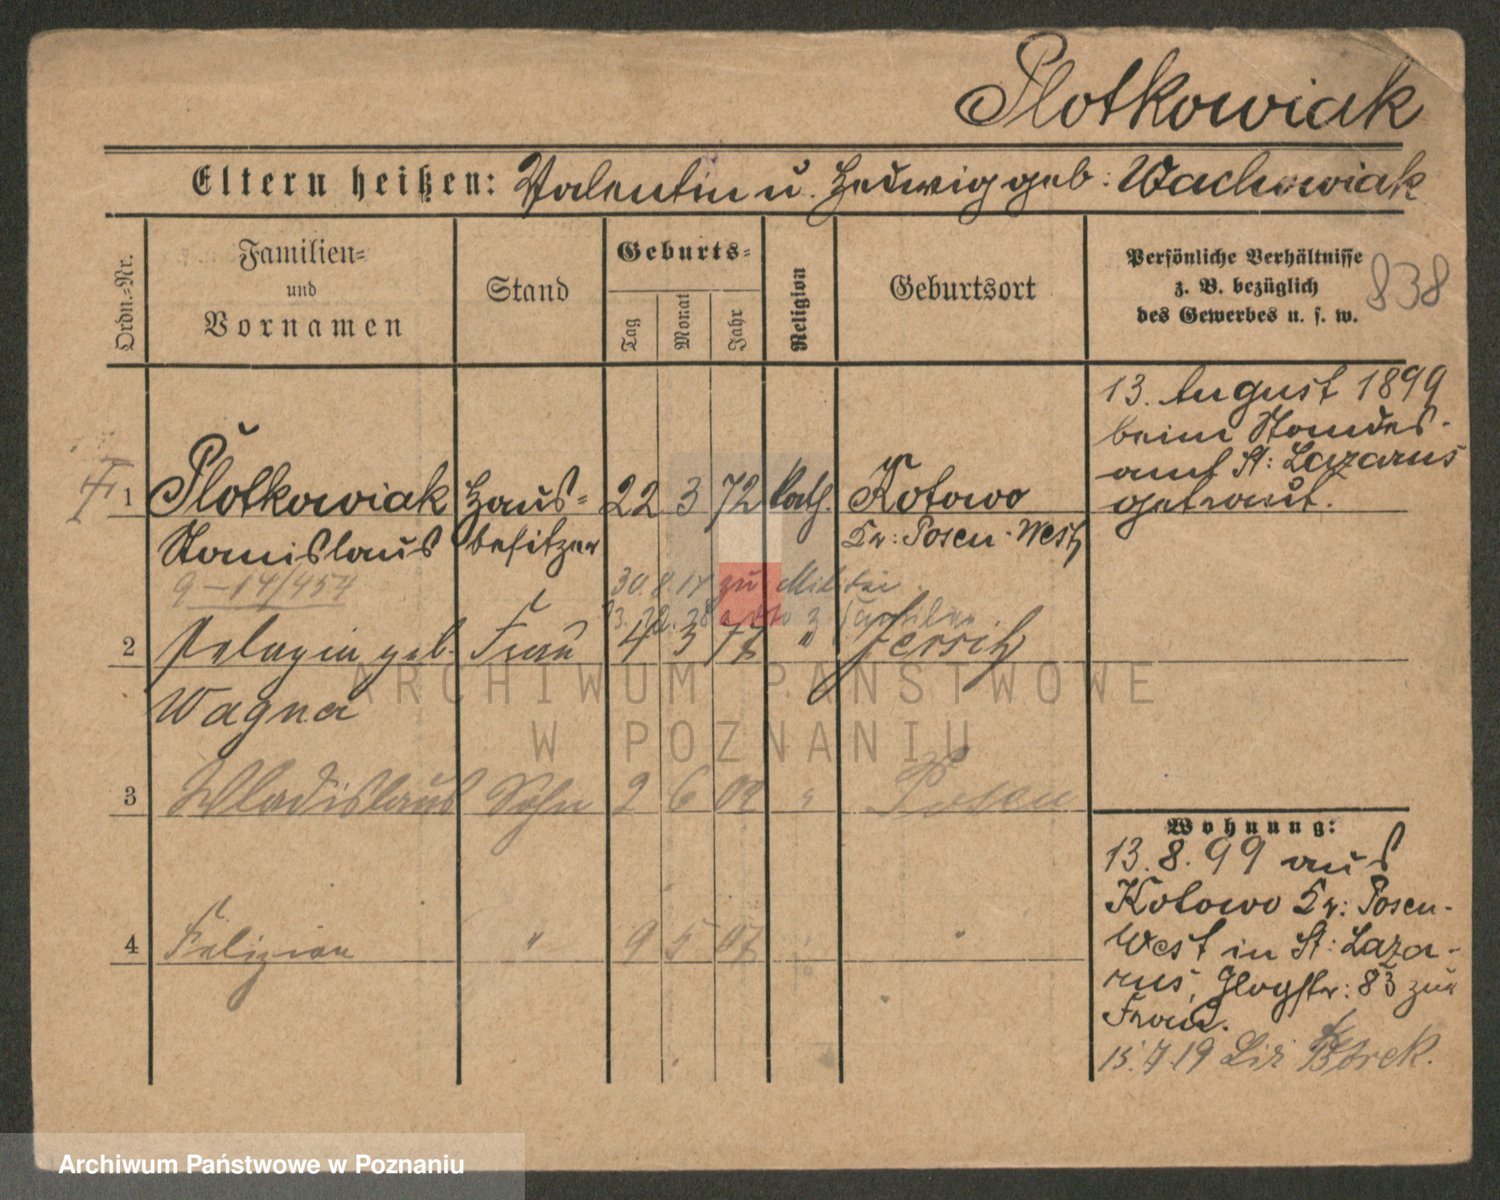 Plotkowiak
Eltern heißen: Valentin u. Hedwig geb: Wachowiak
Ordn.-Nr.
Familien-
und
Vornamen
Stand
Geburts-
Tag
Monat
Jahr
Religion
Geburtsort
Persönliche Verhältnisse
z. B. bezüglich
des Gewerbes u. s. w.
838
13. August 1899
beim Standes-
amt St: Lazarus
getraut.
1 Plotkowiak Haus- 22 3 72 Kath. Kotowo
Stanislaus besitzer Kr: Posen-West
9-14/454 30.8.14 zu Militär
2 Pelagia geb. Frau 4 3 77 " Jersitz
Wagner
3 Wladislaus Sohn 2 6 02 " Posen
4 Felizian " 9 5 07 "
Wohnung:
13.8.99 aus
Kotowo Kr: Posen-
West in St: Laza-
rus, Glogstr: 83 zur
Frau.
15.7.19 Borek.
ARCHIWUM PAŃSTWOWE
W POZNANIU
Archiwum Państwowe w Poznaniu